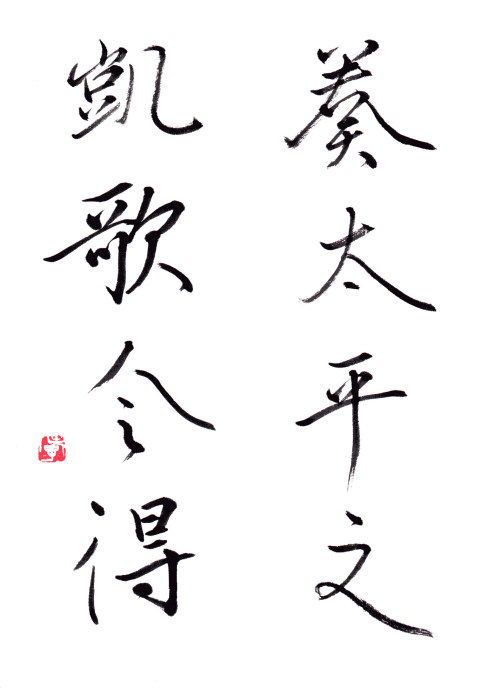 奏太平文
凱歌今得